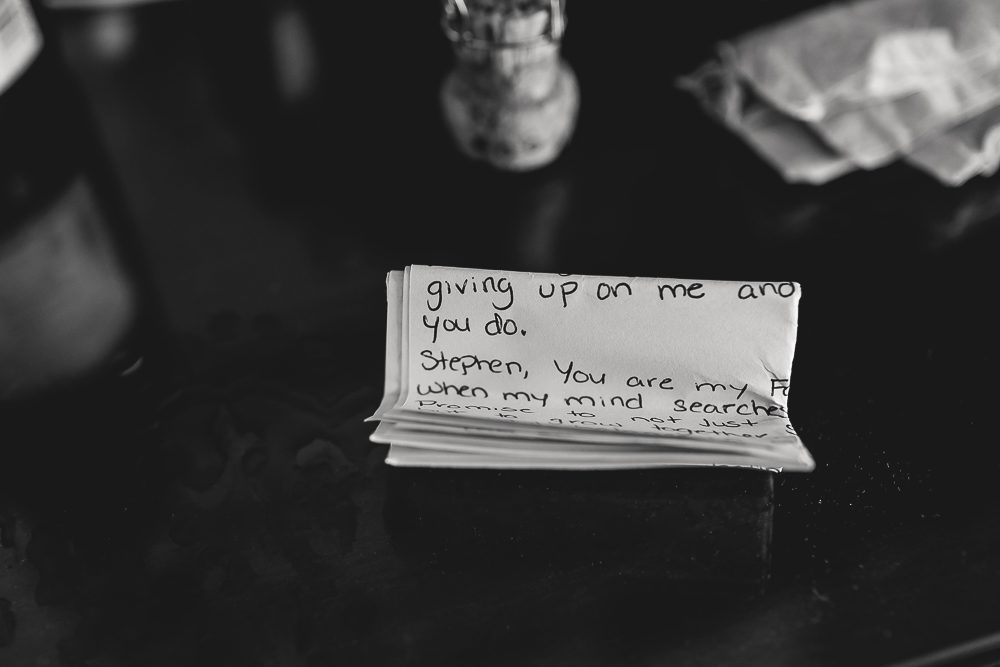 giving up on me and
you do.
Stephen, You are my
when my mind searches
Promise to not just
to grow together